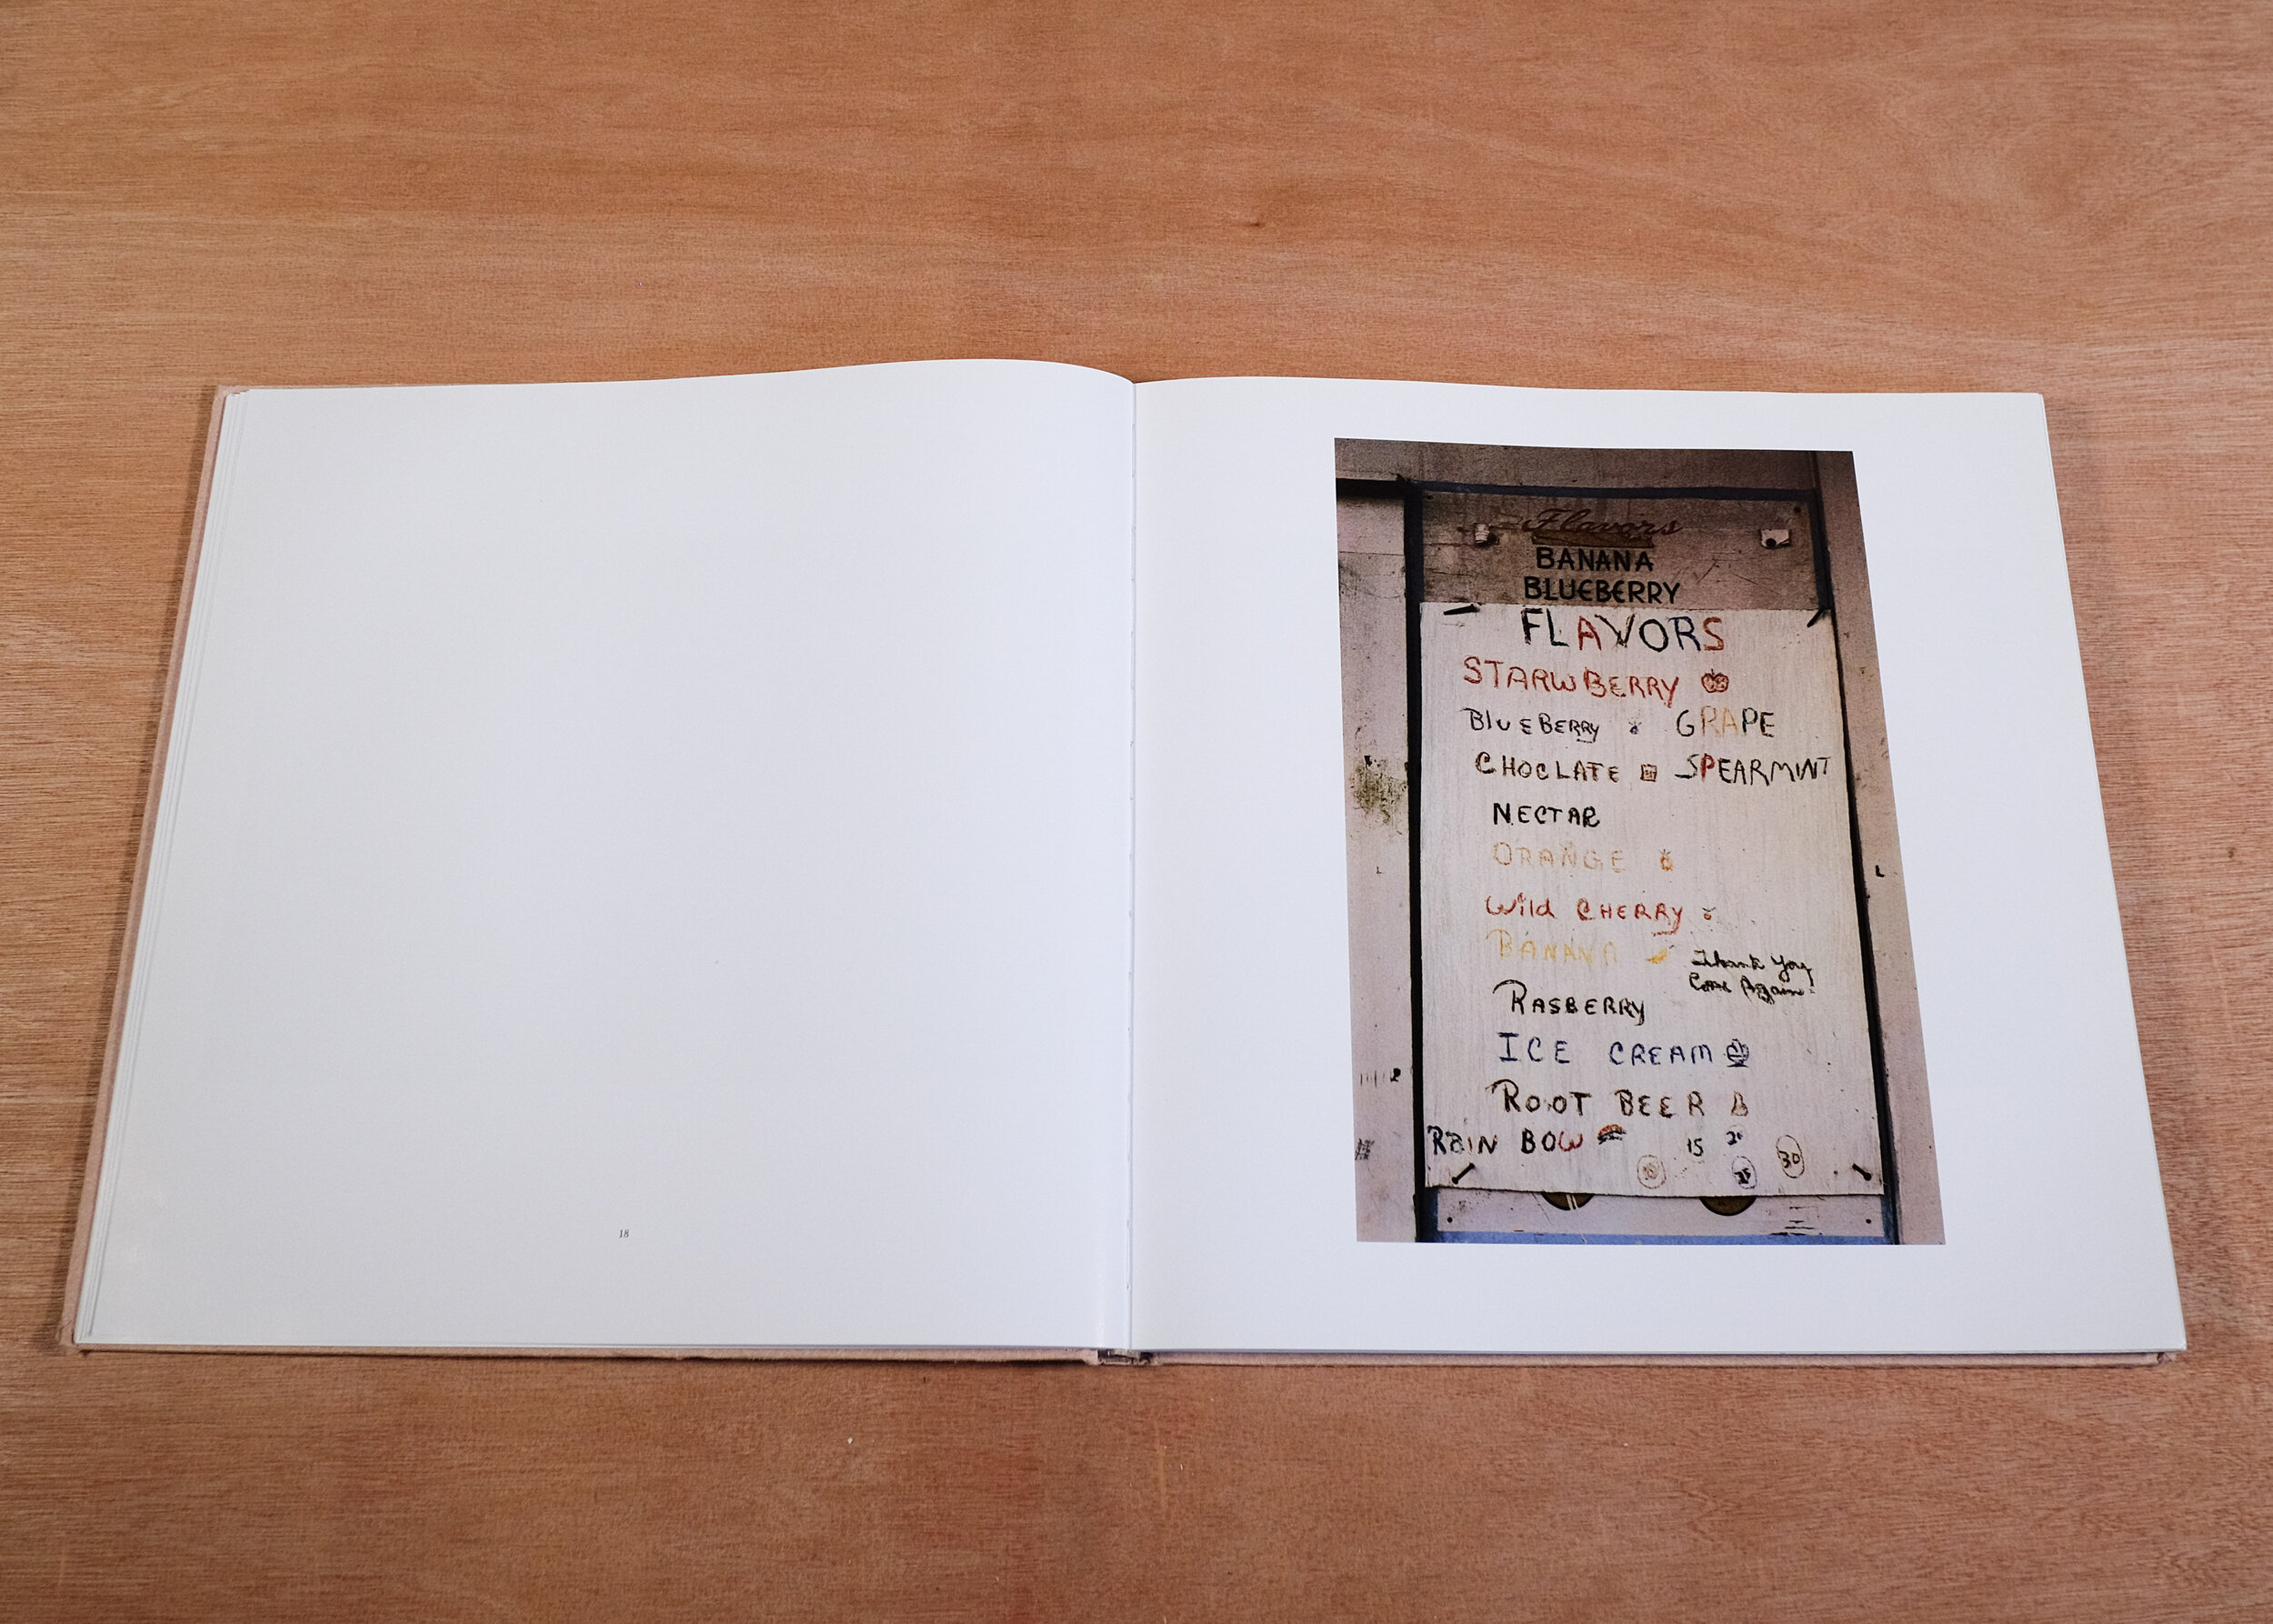 18
Flavors
BANANA
BLUEBERRY
FLAVORS
STARWBERRY
BLUEBERRY GRAPE
CHOCLATE SPEARMINT
NECTAR
ORANGE
Wild CHERRY
BANANA
Thank You
Come Again
RASBERRY
ICE CREAM
ROOT BEER
RAIN BOW 15 20
30